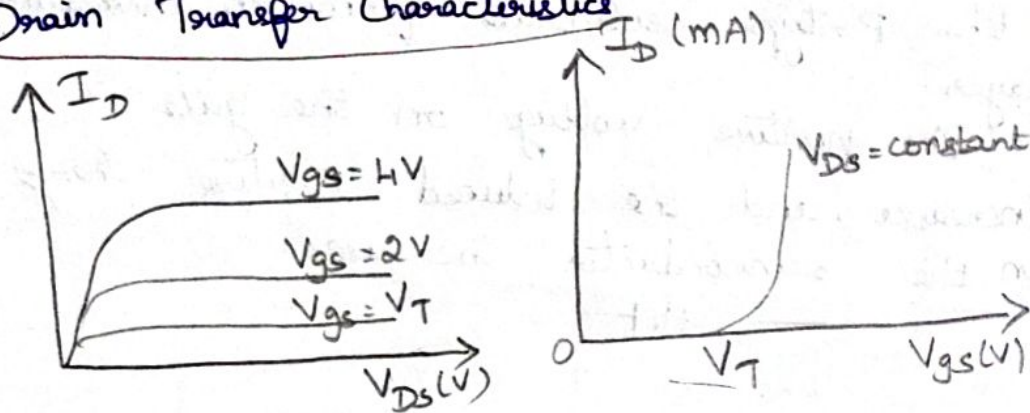 Drain Transfer Characteristics
I_D
Vgs = 4V
Vgs = 2V
Vgs = V_T
V_Ds (V)
I_D (mA)
V_Ds = constant
O
V_T
Vgs (V)